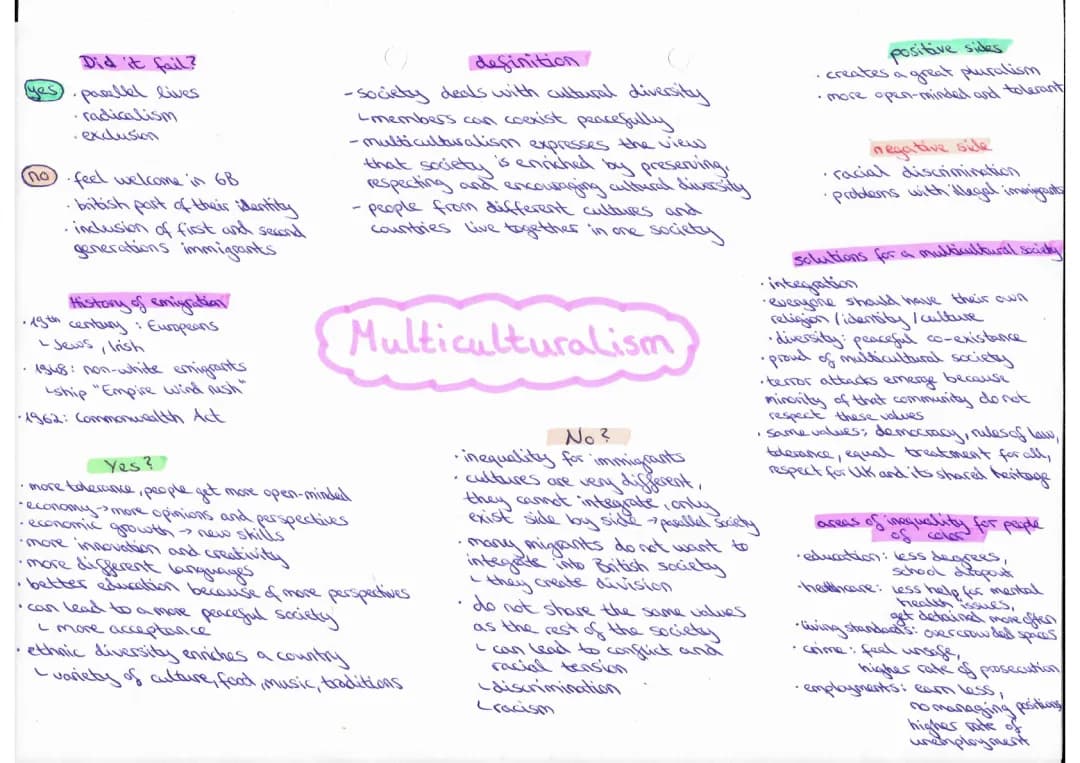 Did it fail?
yes
· parallel lives
· radicalism
· exclusion
no
· feel welcome in GB
· british part of their identity
· inclusion of first and second
generations immigrants
History of emigration
· 19th century : Europeans
Jews, Irish
· 1948: non-white emigrants
ship "Empire Wind rush"
· 1962: Commonwealth Act
Yes?
· more tolerance, people get more open-minded
· economy → more opinions and perspectives
· economic growth → new skills
· more innovation and creativity
· more different languages
· better education because of more perspectives
· can lead to a more peaceful society
more acceptance
· ethnic diversity enriches a country
variety of culture, food, music, traditions
definition
- society deals with cultural diversity
members can coexist peacefully
- multiculturalism expresses the view
that society is enriched by preserving,
respecting and encouraging cultural diversity
- people from different cultures and
countries live together in one society
Multiculturalism
No?
· inequality for immigrants
· cultures are very different,
they cannot integrate, only
exist side by side → parallel society
· many migrants do not want to
integrate into British society
they create division
· do not share the same values
as the rest of the society
can lead to conflict and
racial tension
discrimination
racism
positive sides
· creates a great pluralism
· more open-minded and tolerant
negative side
· racial discrimination
· problems with illegal immigrants
solutions for a multicultural society
· integration
· everyone should have their own
religion / identity / culture
· diversity: peaceful co-existance
· proud of multicultural society
· terror attacks emerge because
minority of that community do not
respect these values
· same values: democracy, rules of law,
tolerance, equal treatment for all,
respect for UK and its shared heritage
areas of inequality for people
of color
· education: less degrees,
school dropout
· healthcare: less help for mental
health issues,
get detained more often
· living standards: overcrowded spaces
· crime: feel unsafe,
higher rate of prosecution
· employments: earn less,
no managing positions
higher rate of
unemployment